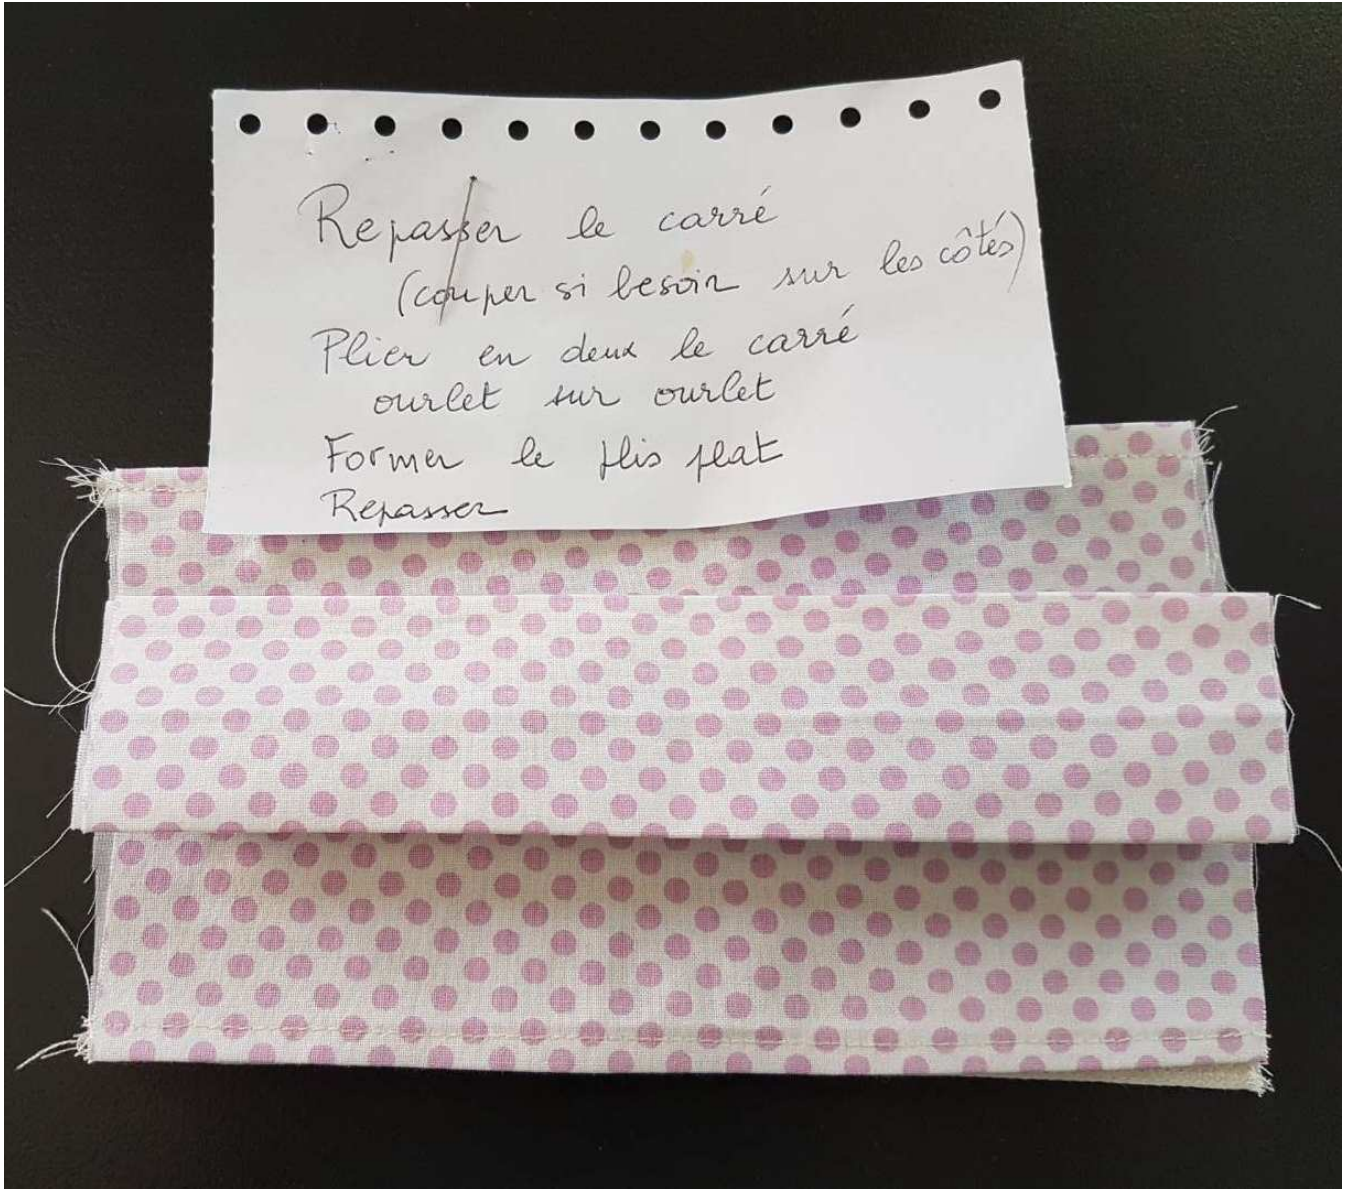 Repasser le carré
(couper si besoin sur les côtés)
Plier en deux le carré
ourlet sur ourlet
Former le plis plat
Repasser